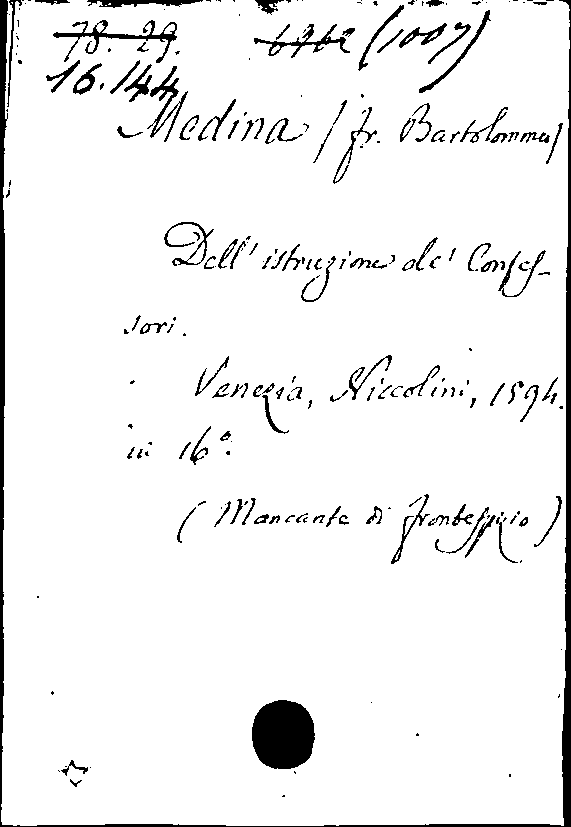 78. 29. 6962 (1007)
16.144
Medina / fr. Bartolommeo /
Dell' istruzione de' Confes-
sori.
Venezia, Niccolini, 1594.
in 16°.
(Mancante di frontespizio)